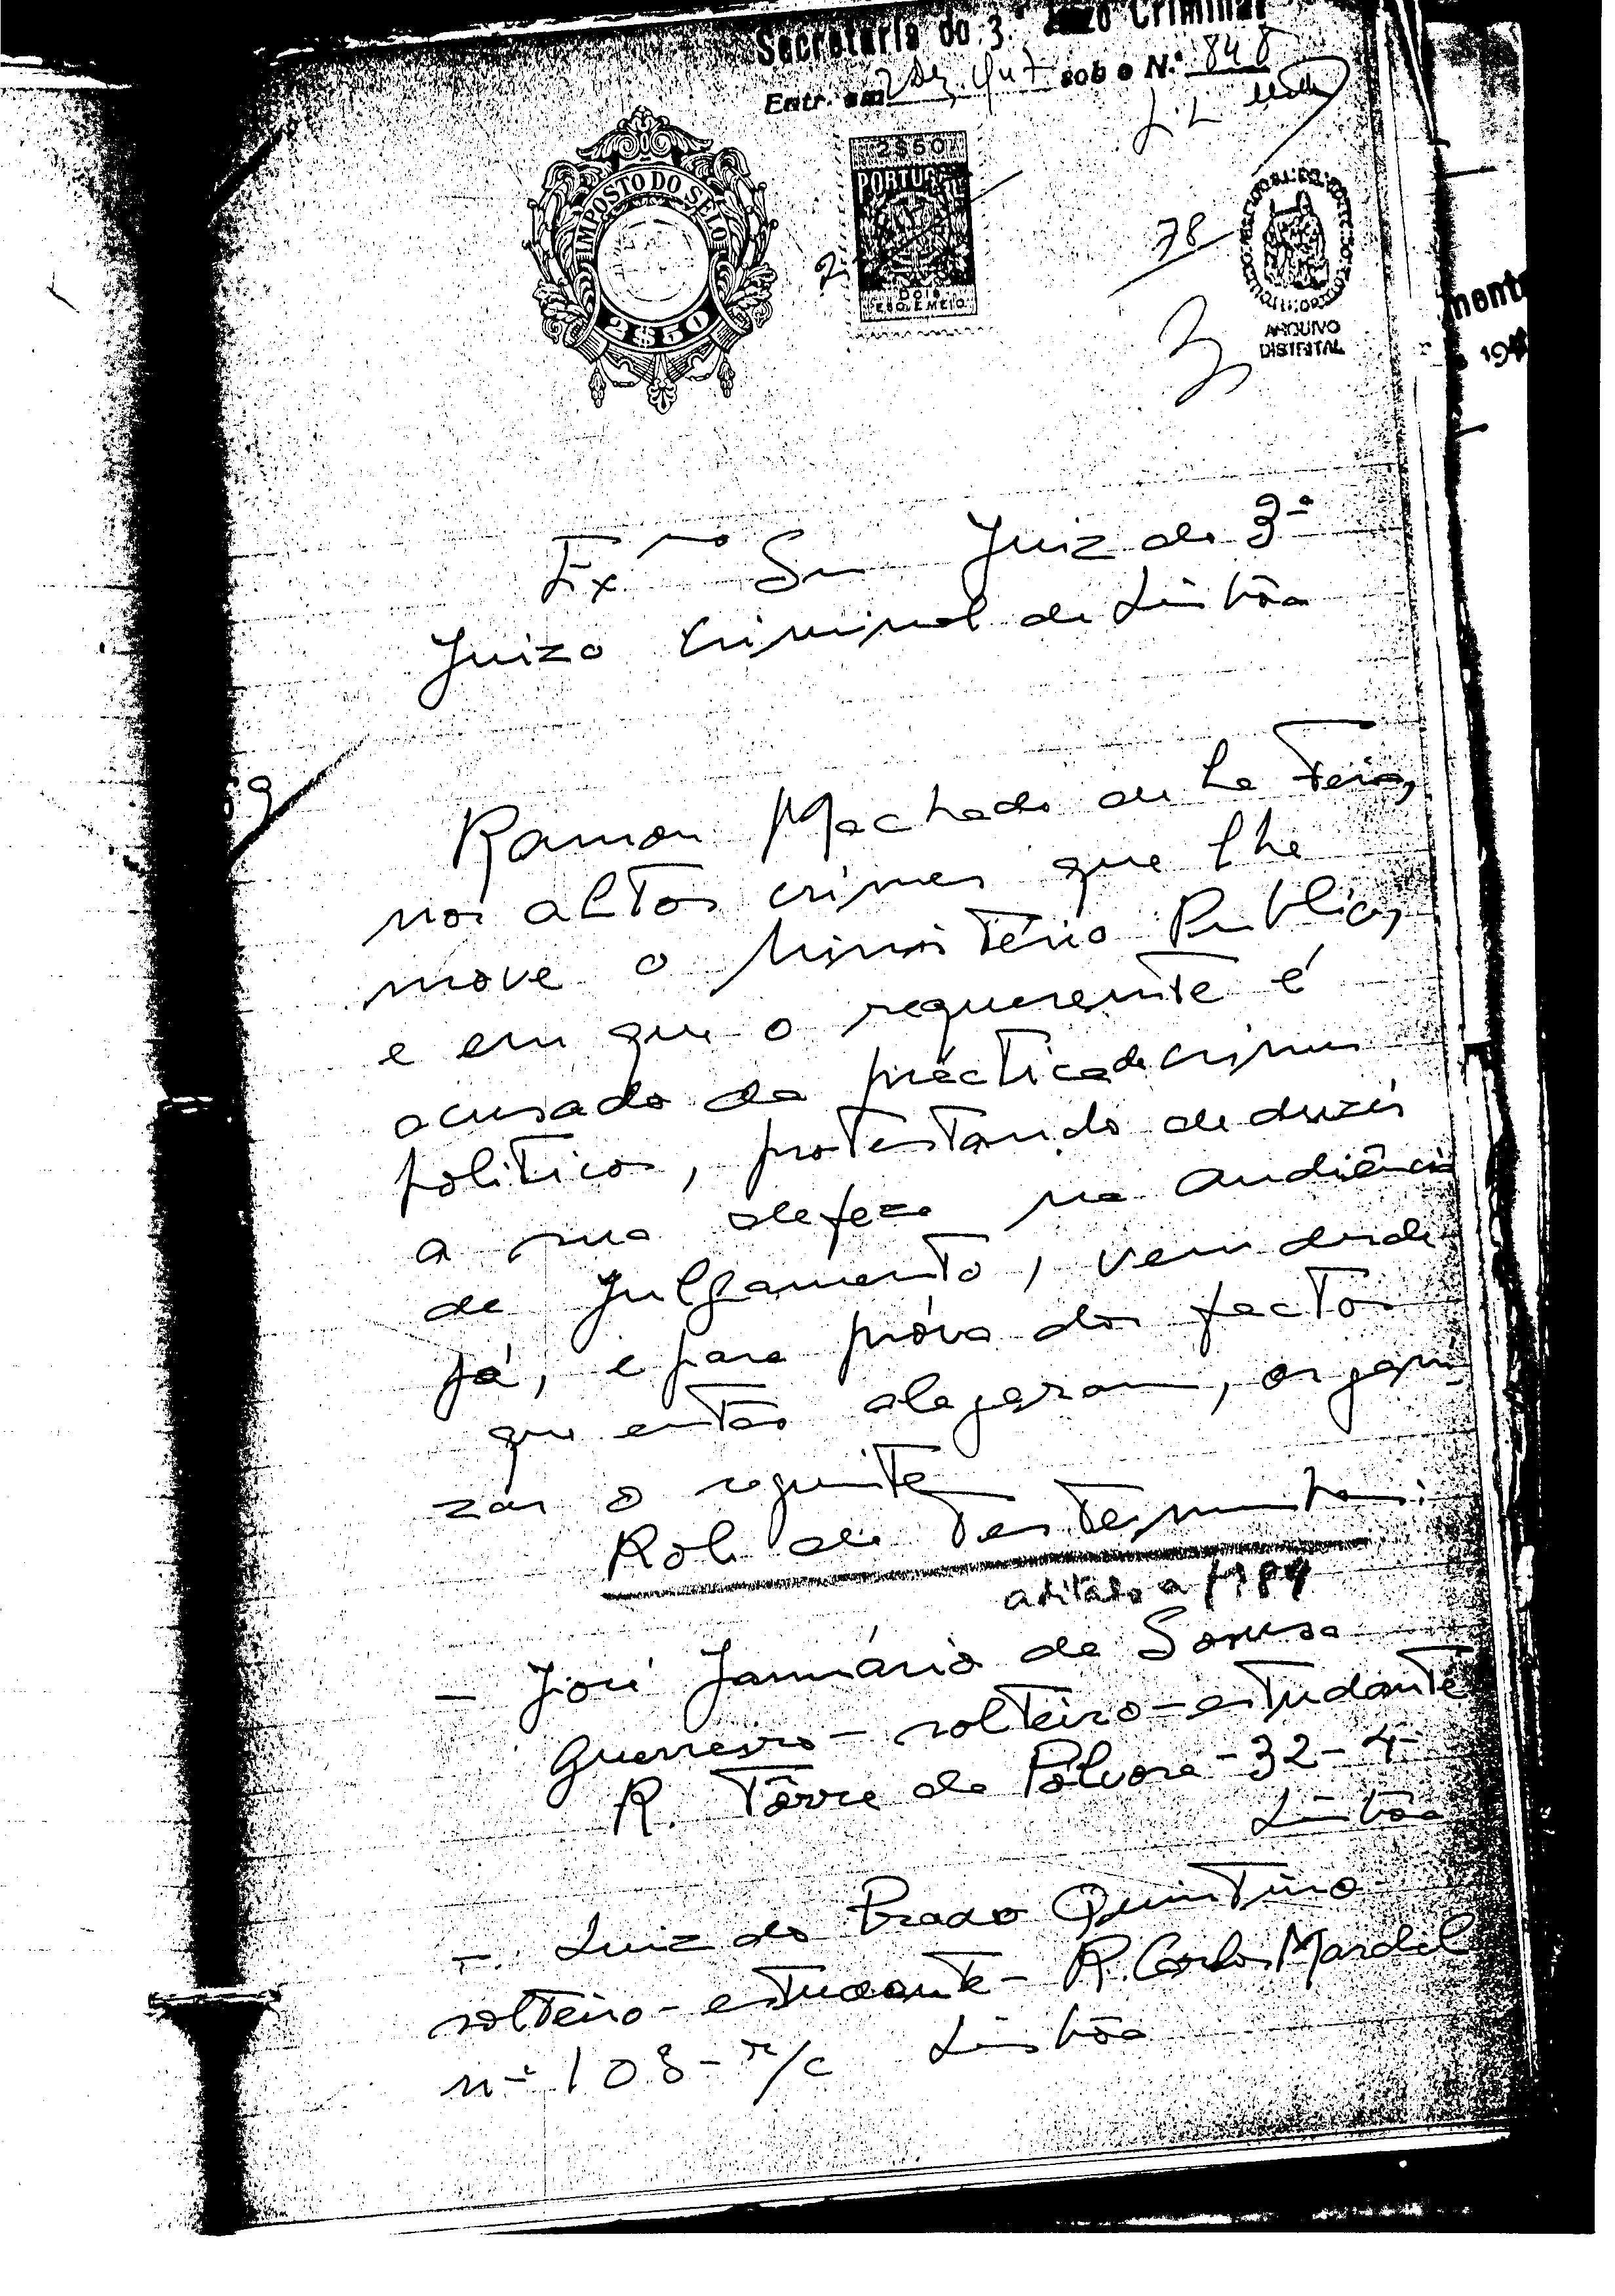 Secretaria do 3.º Juizo Criminal
Entr. em 2 Dez. 947 sob o N.º 848
L.º
IMPOSTO DO SELO
2$50
2$50
PORTUGAL
DOIS
ESC. E MEIO
78
3
ARQUIVO
DISTRITAL
mento
194
Exmo Snr Juiz do 3º
Juizo Criminal de Lisbôa
Ramon Machado de La Feria,
nos altos crimes que lhe
move o Ministério Publico,
e em que o requerente é
acusado da práctica de crimes
politicos, protestando deduzir
a sua defeza na audiência
de Julgamento, vem desde
já, e para próva dos factos
que então alegaram, organi
zar o seguinte
Rol de Testemunhas:
aditado a fl 84
- José Januário de Sousa
Guerreiro - solteiro - estudante
R. Tôrre da Pólvora - 32 - 4º
Lisbôa
- Luiz do Prado Quintino
solteiro - estudante - R. Carlos Mardel
nº 108 - r/c Lisbôa